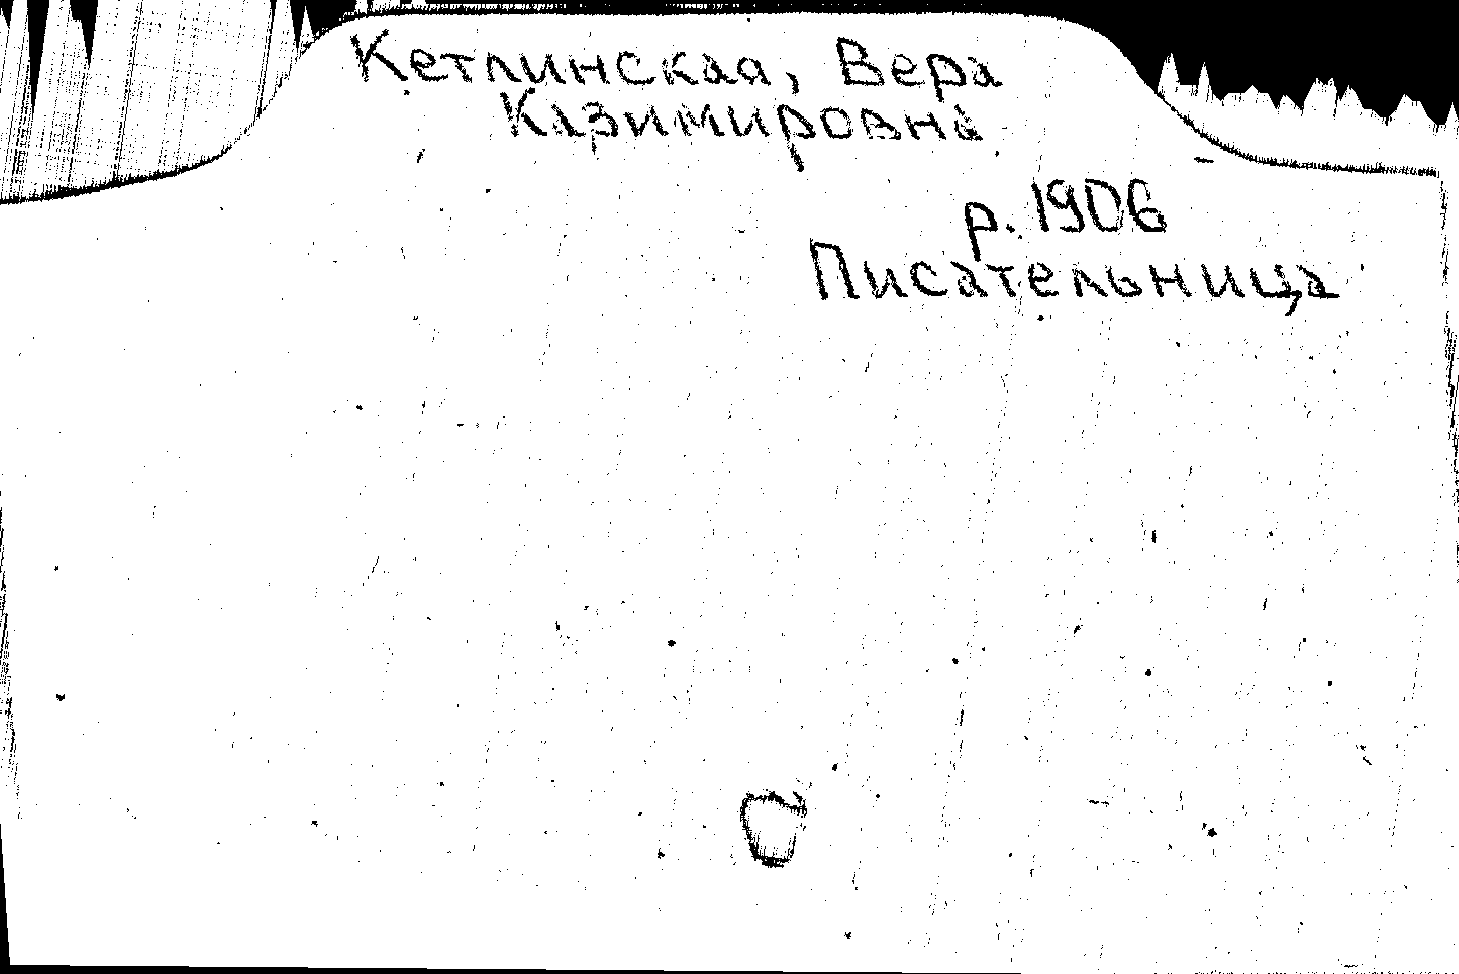 Кетлинская, Вера
Казимировна
р. 1906
Писательница